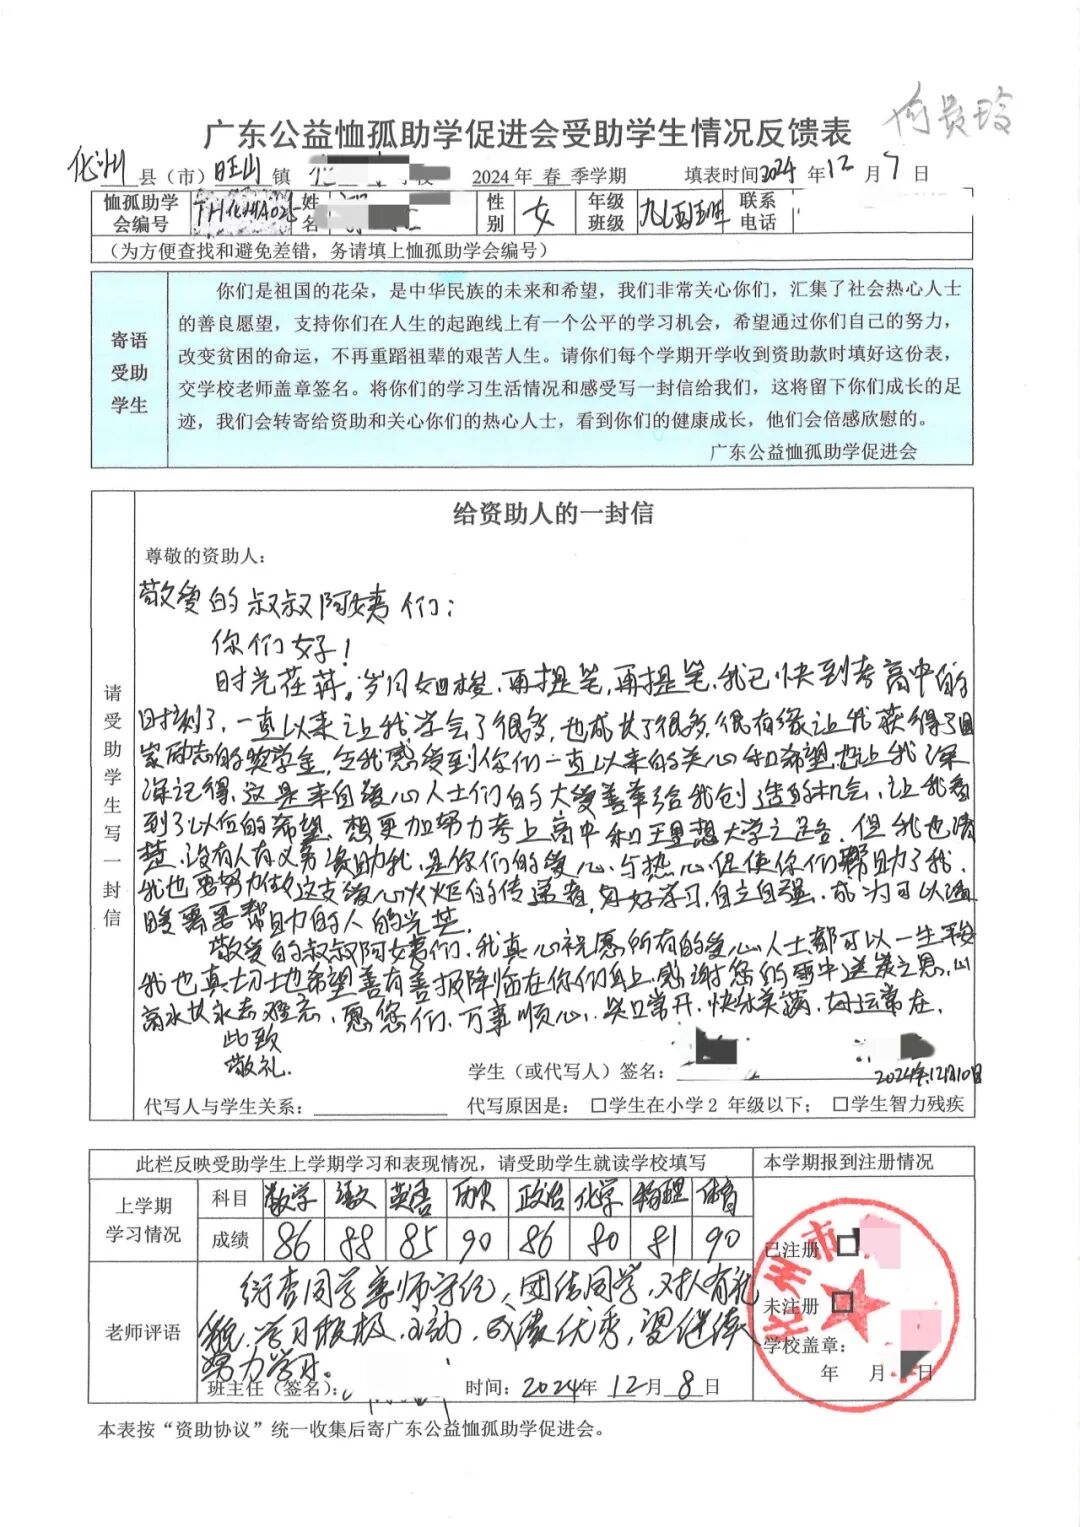 何贵玲
广东公益恤孤助学促进会受助学生情况反馈表
化州县（市）旺山镇 2024年 春 季学期 填表时间2024年12月7日
恤孤助学会编号 TH化州A025 姓名 性别 女 年级班级 联系电话
（为方便查找和避免差错，务请填上恤孤助学会编号）
寄语受助学生
你们是祖国的花朵，是中华民族的未来和希望，我们非常关心你们，汇集了社会热心人士
的善良愿望，支持你们在人生的起跑线上有一个公平的学习机会，希望通过你们自己的努力，
改变贫困的命运，不再重蹈祖辈的艰苦人生。请你们每个学期开学收到资助款时填好这份表，
交学校老师盖章签名。将你们的学习生活情况和感受写一封信给我们，这将留下你们成长的足
迹，我们会转寄给资助和关心你们的热心人士，看到你们的健康成长，他们会倍感欣慰的。
广东公益恤孤助学促进会
请受助学生写一封信
给资助人的一封信
尊敬的资助人：
敬爱的叔叔阿姨们：
你们好！
时光荏苒。岁月如梭，再提笔，再提笔，我已快到考高中的
时刻了，一直以来让我学会了很多，也成长了很多，很有缘让我获得了国
家励志的奖学金，令我感受到你们一直以来的关心和希望，也让我深
深记得，这是来自爱心人士们的大爱善举给我创造的机会，让我看
到了以后的希望，想更加努力考上高中和理想大学之路，但我也清
楚，没有人有义务资助我，是你们的爱心、与热心，促使你们帮助了我，
我也要努力做这支爱心火炬的传递者，好好学习，自立自强，成为可以温
暖需要帮助的人的光芒。
敬爱的叔叔阿姨们，我真心祝愿所有的爱心人士都可以一生平安
我也真切地希望善有善报降临在你们身上，感谢您的雪中送炭之恩，山
高水长永志难忘，愿您们，万事顺心，笑口常开，快乐美满，好运常在，
此致
敬礼.
学生（或代写人）签名：
2024年12月10日
代写人与学生关系： 代写原因是： □学生在小学2 年级以下； □学生智力残疾
此栏反映受助学生上学期学习和表现情况，请受助学生就读学校填写 本学期报到注册情况
上学期学习情况
科目 数学 语文 英语 历史 政治 化学 物理 体育
成绩 86 88 85 90 86 80 81 90
老师评语
衍杏同学尊师守纪，团结同学，对人有礼
貌，学习积极，主动，成绩优秀，望继续
努力学习。
班主任（签名）： 时间：2024年12月8日
化州市
已注册 □
未注册 □
学校盖章：
年 月 日
本表按“资助协议”统一收集后寄广东公益恤孤助学促进会。